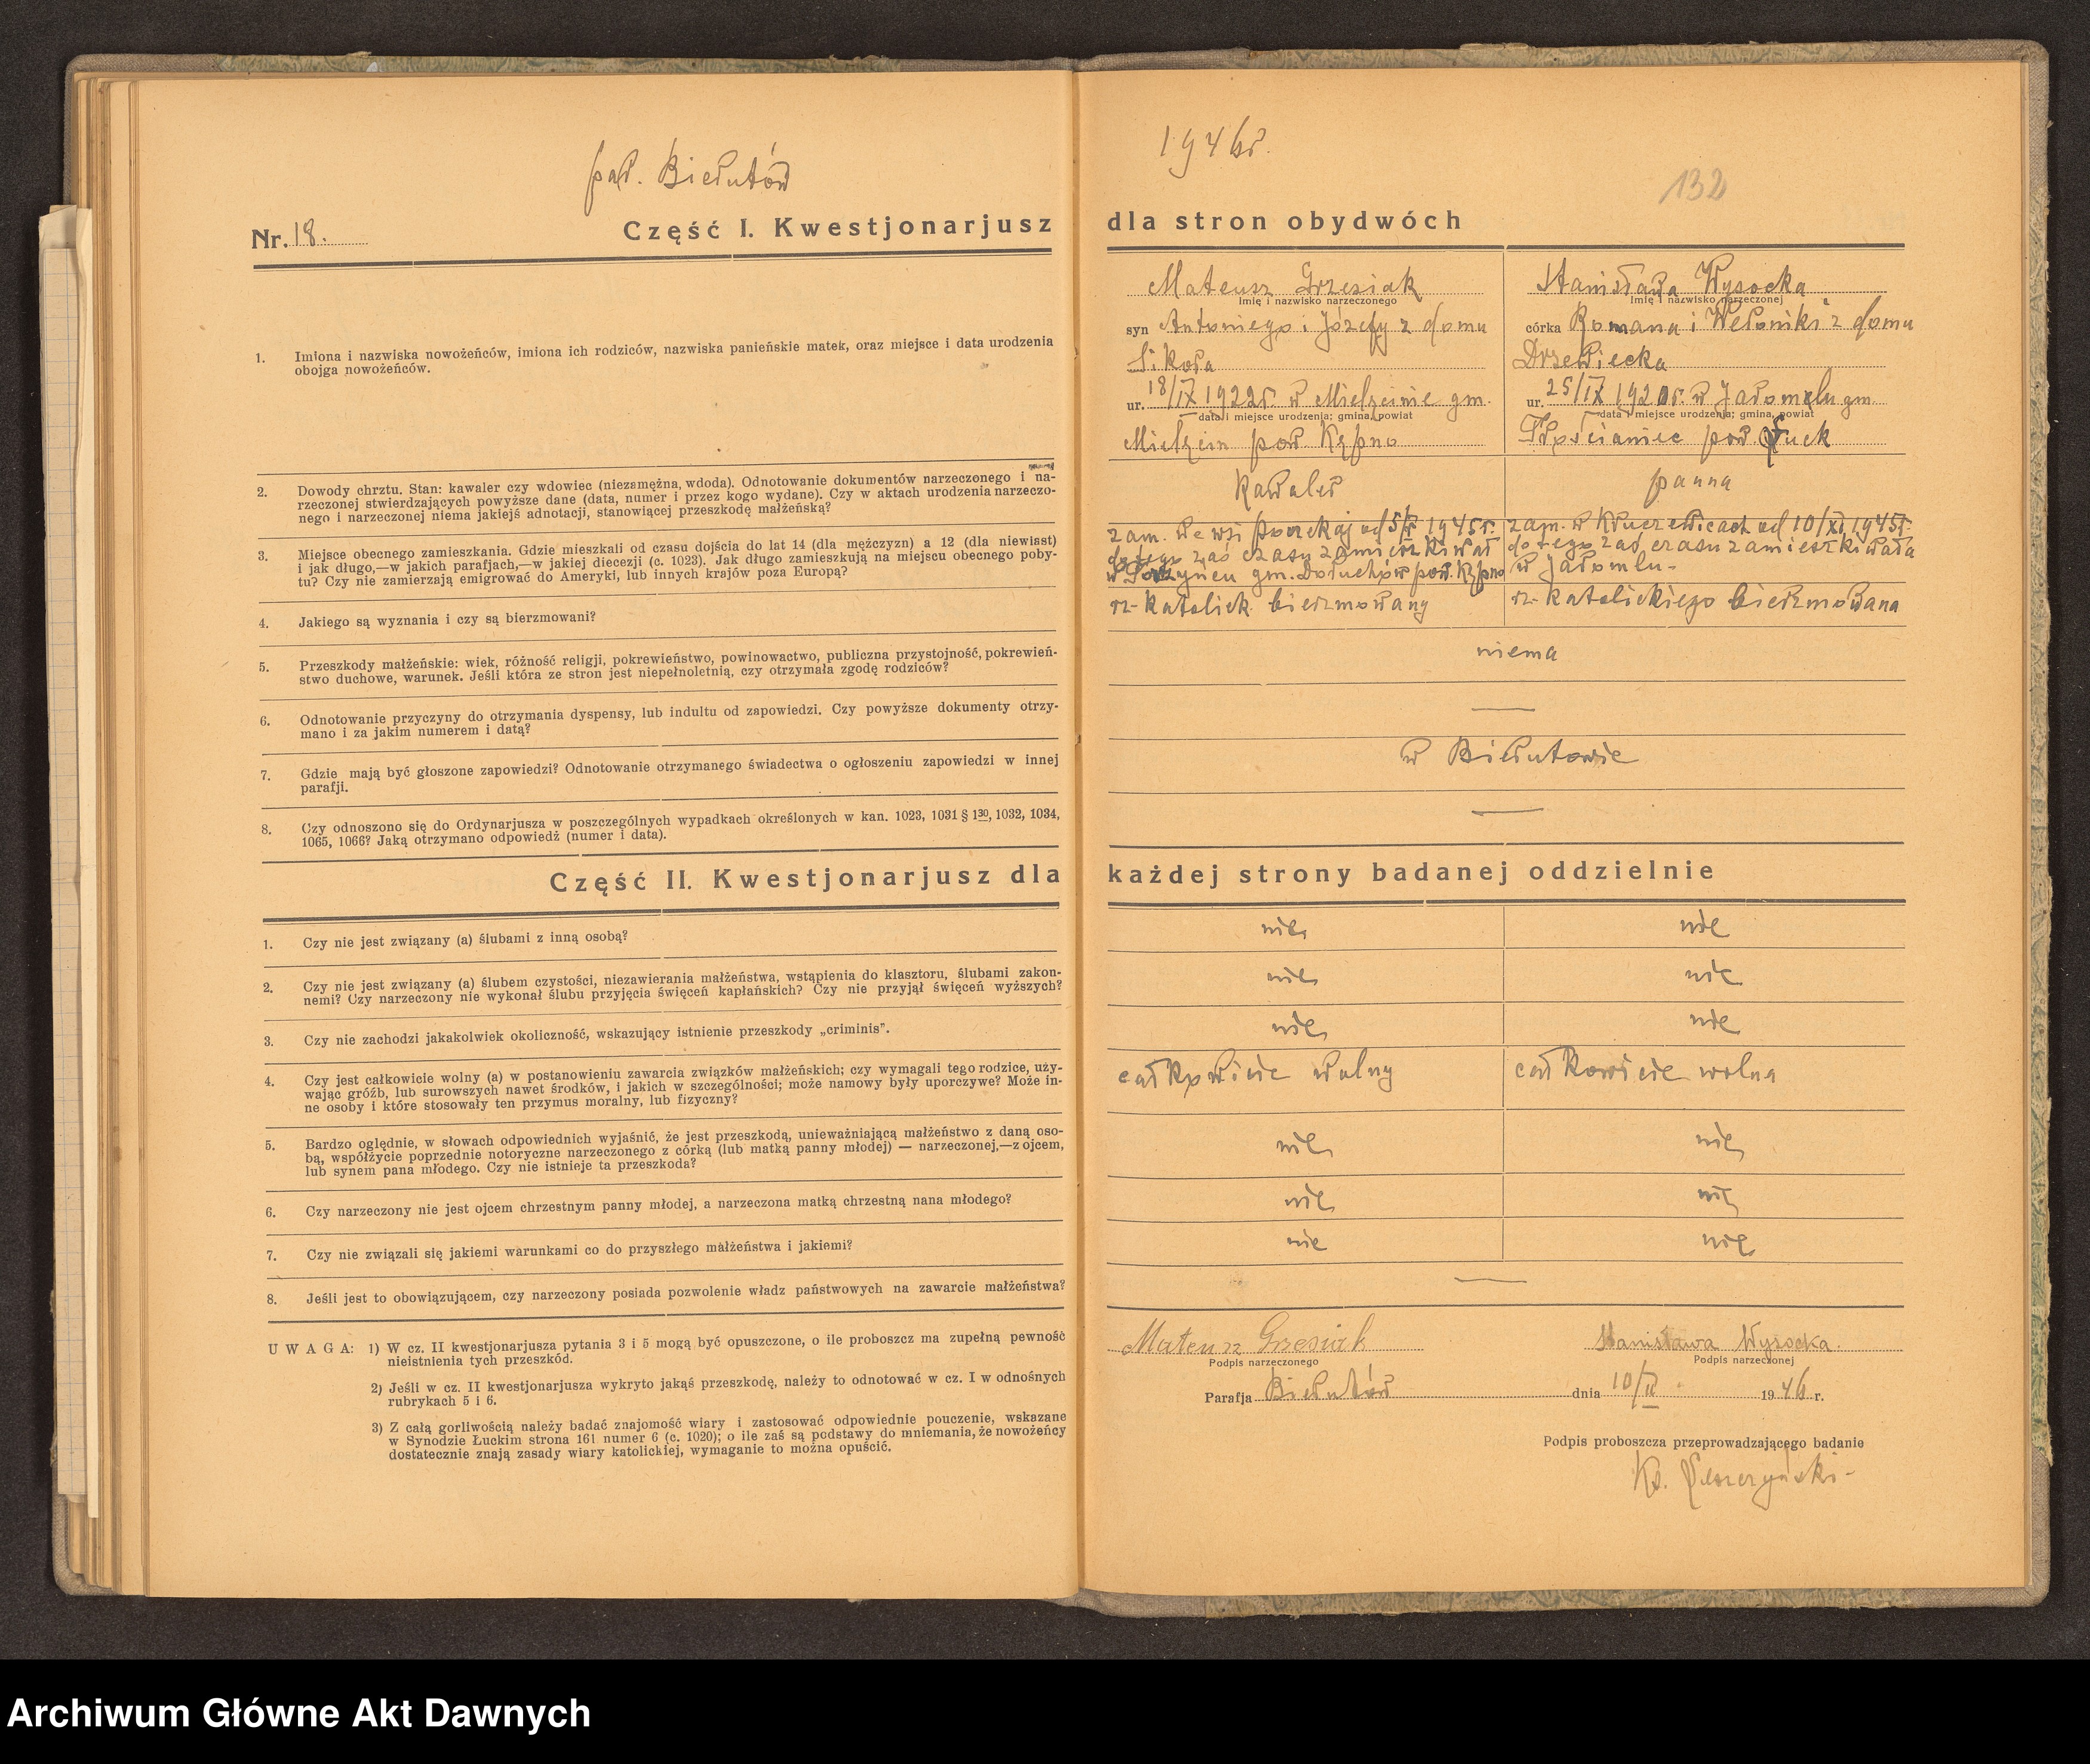 par. Bierutów
1946r.
132
Nr. 18.
Część I. Kwestjonarjusz dla stron obydwóch
1. Imiona i nazwiska nowożeńców, imiona ich rodziców, nazwiska panieńskie matek, oraz miejsce i data urodzenia
obojga nowożeńców.
Mateusz Grzesiak
Imię i nazwisko narzeczonego
syn Antoniego i Józefy z domu
Sikora
ur. 18/IX 1922r. w Mielęcinie gm.
data i miejsce urodzenia; gmina, powiat
Mielęcin pow. Kępno
Stanisława Wysocka
Imię i nazwisko narzeczonej
córka Romana i Weroniki z domu
Drzewiecka
ur. 25/IX 1920r. w Jaromelu gm
data i miejsce urodzenia; gmina, powiat
pow. Łuck
2. Dowody chrztu. Stan: kawaler czy wdowiec (niezamężna, wdoda). Odnotowanie dokumentów narzeczonego i na-
rzeczonej stwierdzających powyższe dane (data, numer i przez kogo wydane). Czy w aktach urodzenia narzeczo-
nego i narzeczonej niema jakiejś adnotacji, stanowiącej przeszkodę małżeńską?
Kawaler
panna
3. Miejsce obecnego zamieszkania. Gdzie mieszkali od czasu dojścia do lat 14 (dla mężczyzn) a 12 (dla niewiast)
i jak długo,—w jakich parafjach,—w jakiej diecezji (c. 1023). Jak długo zamieszkują na miejscu obecnego poby-
tu? Czy nie zamierzają emigrować do Ameryki, lub innych krajów poza Europą?
zam. we wsi 1945r.
do tego zaś czasu zamieszkiwał
gm. Doruchów pow. Kępno
zam. w od 10/XI 1945r.
do tego zaś czasu zamieszkiwała
w Jaromlu-
4. Jakiego są wyznania i czy są bierzmowani?
rz-katolick. bierzmowany
rz-katolickiego bierzmowana
5. Przeszkody małżeńskie: wiek, różność religji, pokrewieństwo, powinowactwo, publiczna przystojność, pokrewień-
stwo duchowe, warunek. Jeśli która ze stron jest niepełnoletnią, czy otrzymała zgodę rodziców?
niema
6. Odnotowanie przyczyny do otrzymania dyspensy, lub indultu od zapowiedzi. Czy powyższe dokumenty otrzy-
mano i za jakim numerem i datą?
—
7. Gdzie mają być głoszone zapowiedzi? Odnotowanie otrzymanego świadectwa o ogłoszeniu zapowiedzi w innej
parafji.
w Bierutowie
8. Czy odnoszono się do Ordynarjusza w poszczególnych wypadkach określonych w kan. 1023, 1031 § 1 30, 1032, 1034,
1065, 1066? Jaką otrzymano odpowiedź (numer i data).
—
Część II. Kwestjonarjusz dla każdej strony badanej oddzielnie
1. Czy nie jest związany (a) ślubami z inną osobą?
nie
nie
2. Czy nie jest związany (a) ślubem czystości, niezawierania małżeństwa, wstąpienia do klasztoru, ślubami zakon-
nemi? Czy narzeczony nie wykonał ślubu przyjęcia święceń kapłańskich? Czy nie przyjął święceń wyższych?
nie
nie
3. Czy nie zachodzi jakakolwiek okoliczność, wskazujący istnienie przeszkody „criminis".
nie
nie
4. Czy jest całkowicie wolny (a) w postanowieniu zawarcia związków małżeńskich; czy wymagali tego rodzice, uży-
wając gróźb, lub surowszych nawet środków, i jakich w szczególności; może namowy były uporczywe? Może in-
ne osoby i które stosowały ten przymus moralny, lub fizyczny?
całkowicie wolny
całkowicie wolna
5. Bardzo oględnie, w słowach odpowiednich wyjaśnić, że jest przeszkodą, unieważniającą małżeństwo z daną oso-
bą, współżycie poprzednie notoryczne narzeczonego z córką (lub matką panny młodej) — narzeczonej,—z ojcem,
lub synem pana młodego. Czy nie istnieje ta przeszkoda?
nie
nie
6. Czy narzeczony nie jest ojcem chrzestnym panny młodej, a narzeczona matką chrzestną nana młodego?
nie
nie
7. Czy nie związali się jakiemi warunkami co do przyszłego małżeństwa i jakiemi?
nie
nie
8. Jeśli jest to obowiązującem, czy narzeczony posiada pozwolenie władz państwowych na zawarcie małżeństwa?
—
UWAGA: 1) W cz. II kwestjonarjusza pytania 3 i 5 mogą być opuszczone, o ile proboszcz ma zupełną pewność
nieistnienia tych przeszkód.
2) Jeśli w cz. II kwestjonarjusza wykryto jakąś przeszkodę, należy to odnotować w cz. I w odnośnych
rubrykach 5 i 6.
3) Z całą gorliwością należy badać znajomość wiary i zastosować odpowiednie pouczenie, wskazane
w Synodzie Łuckim strona 161 numer 6 (c. 1020); o ile zaś są podstawy do mniemania, że nowożeńcy
dostatecznie znają zasady wiary katolickiej, wymaganie to można opuścić.
Mateusz Grzesiak
Podpis narzeczonego
Stanisława Wysocka.
Podpis narzeczonej
Parafja Bierutów dnia 10/II 1946 r.
Podpis proboszcza przeprowadzającego badanie
Ks.
Archiwum Główne Akt Dawnych